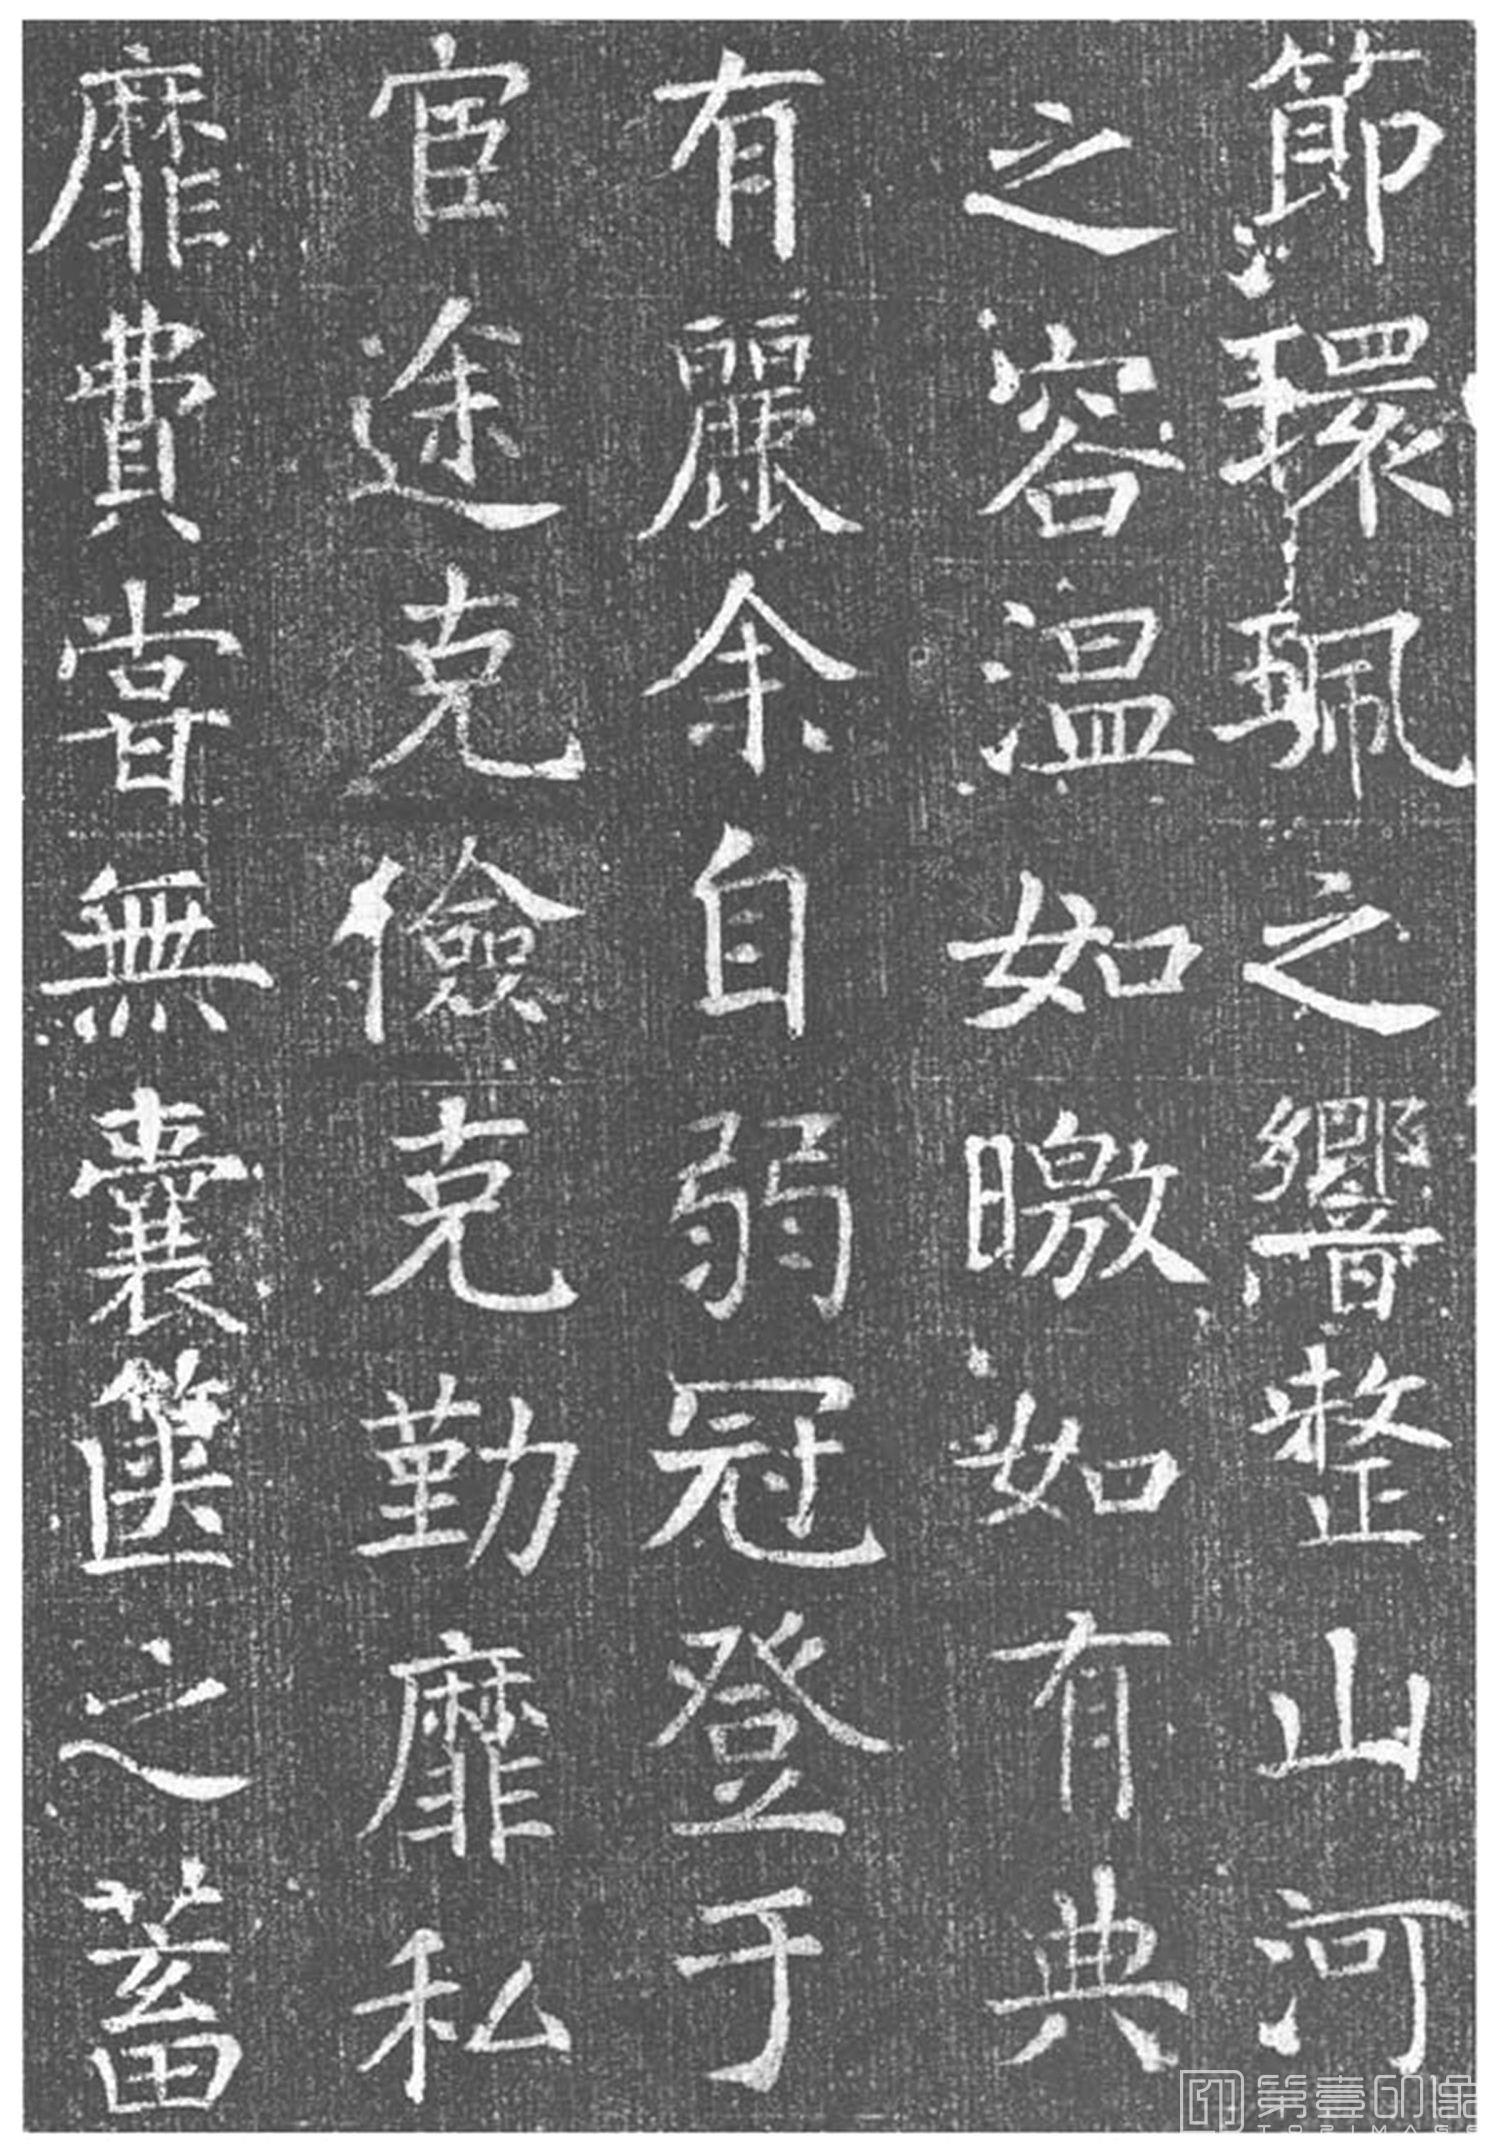 節環珮之響整山河
之容温如曒如有典
有麗余自弱冠登于
宦途克儉克勤靡私
靡費嘗無囊篋之蓄
第壹印像
TOPIMAGE